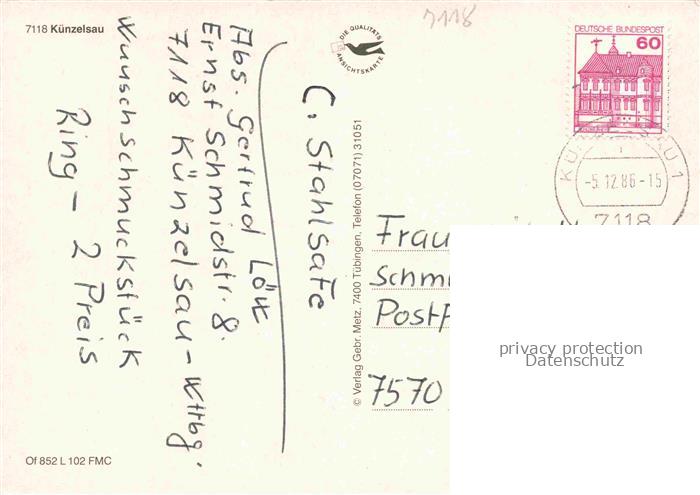 7118 Künzelsau
7118
DIE QUALITÄTS
ANSICHTSKARTE
DEUTSCHE BUNDESPOST
60
-5.12.86-15
7118
C. Stahlsafe
Abs. Gertrud Lötz
Ernst Schmidstr. 8.
7118 Künzelsau-Wttbg.
Wunschschmuckstück
Ring - 2 Preis
© Verlag Gebr. Metz, 7400 Tübingen, Telefon (07071) 31051
Frau
Schm
Postf
7570
privacy protection
Datenschutz
Of 852 L 102 FMC